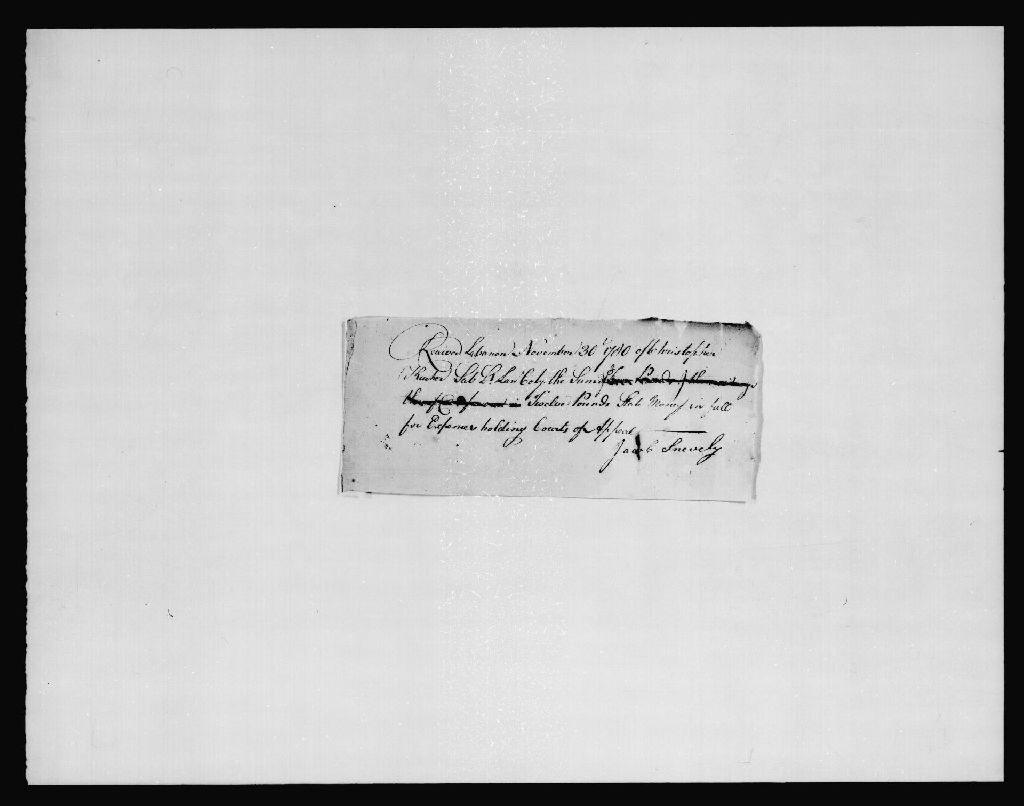 Received Lebanon November 30th 1780 of Christopher
Kucher Sub Lt. Lan Coty the Sum of
Twelve Pounds State Money in full
for Expences holding Courts of Appeal
Jacob Snevely